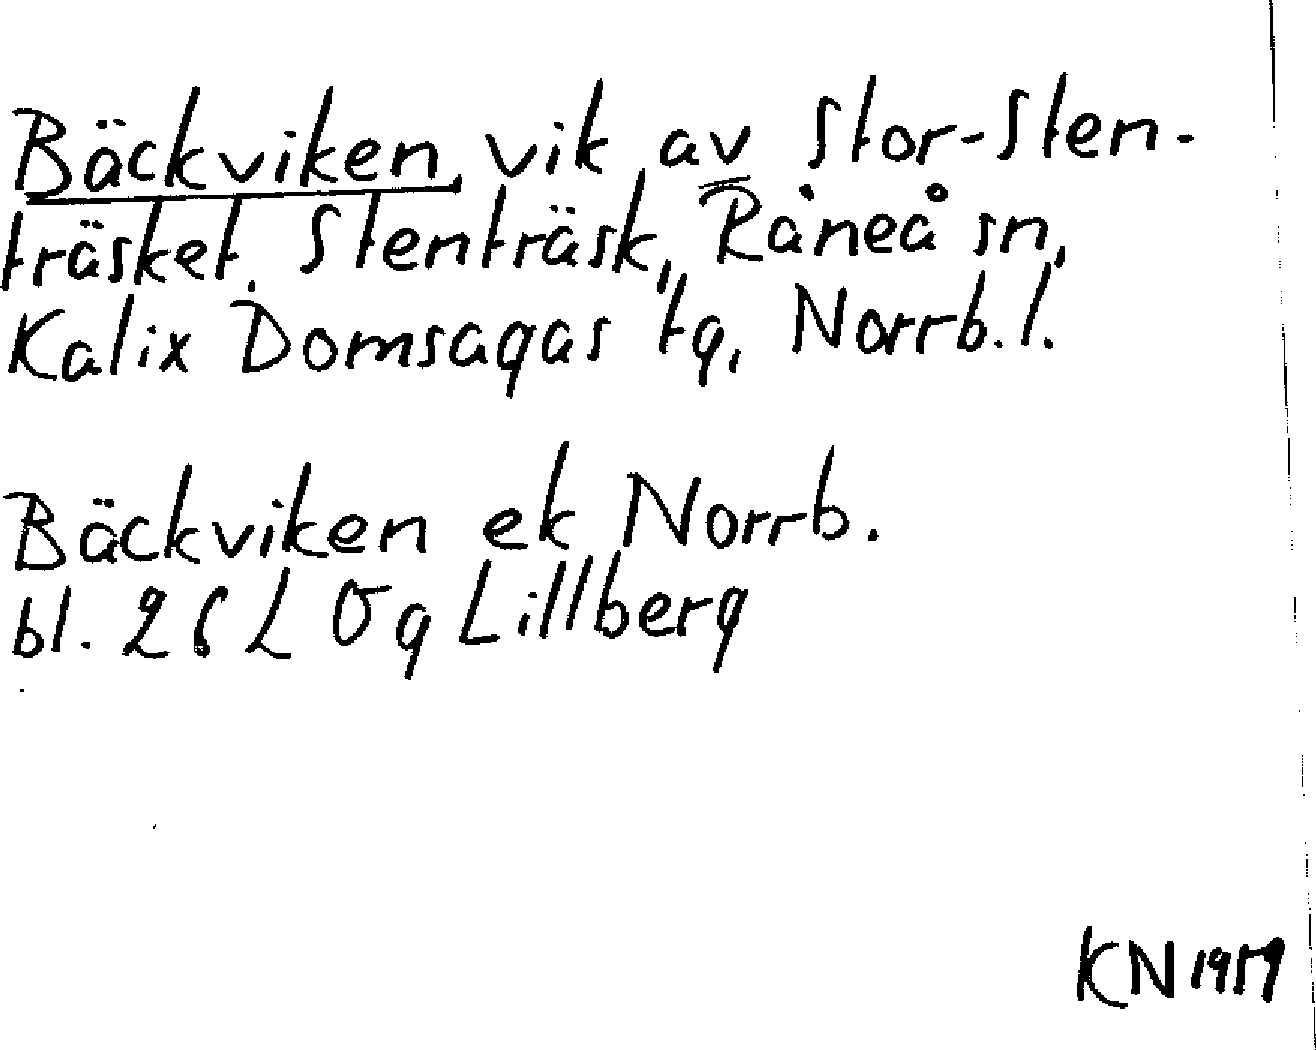 Bäckviken, vik av Stor-Sten-
träsket, Stenträsk, Råneå sn,
Kalix Domsagas tg, Norrb. l.
Bäckviken ek Norrb.
bl. 26 L Og Lillberg
KN